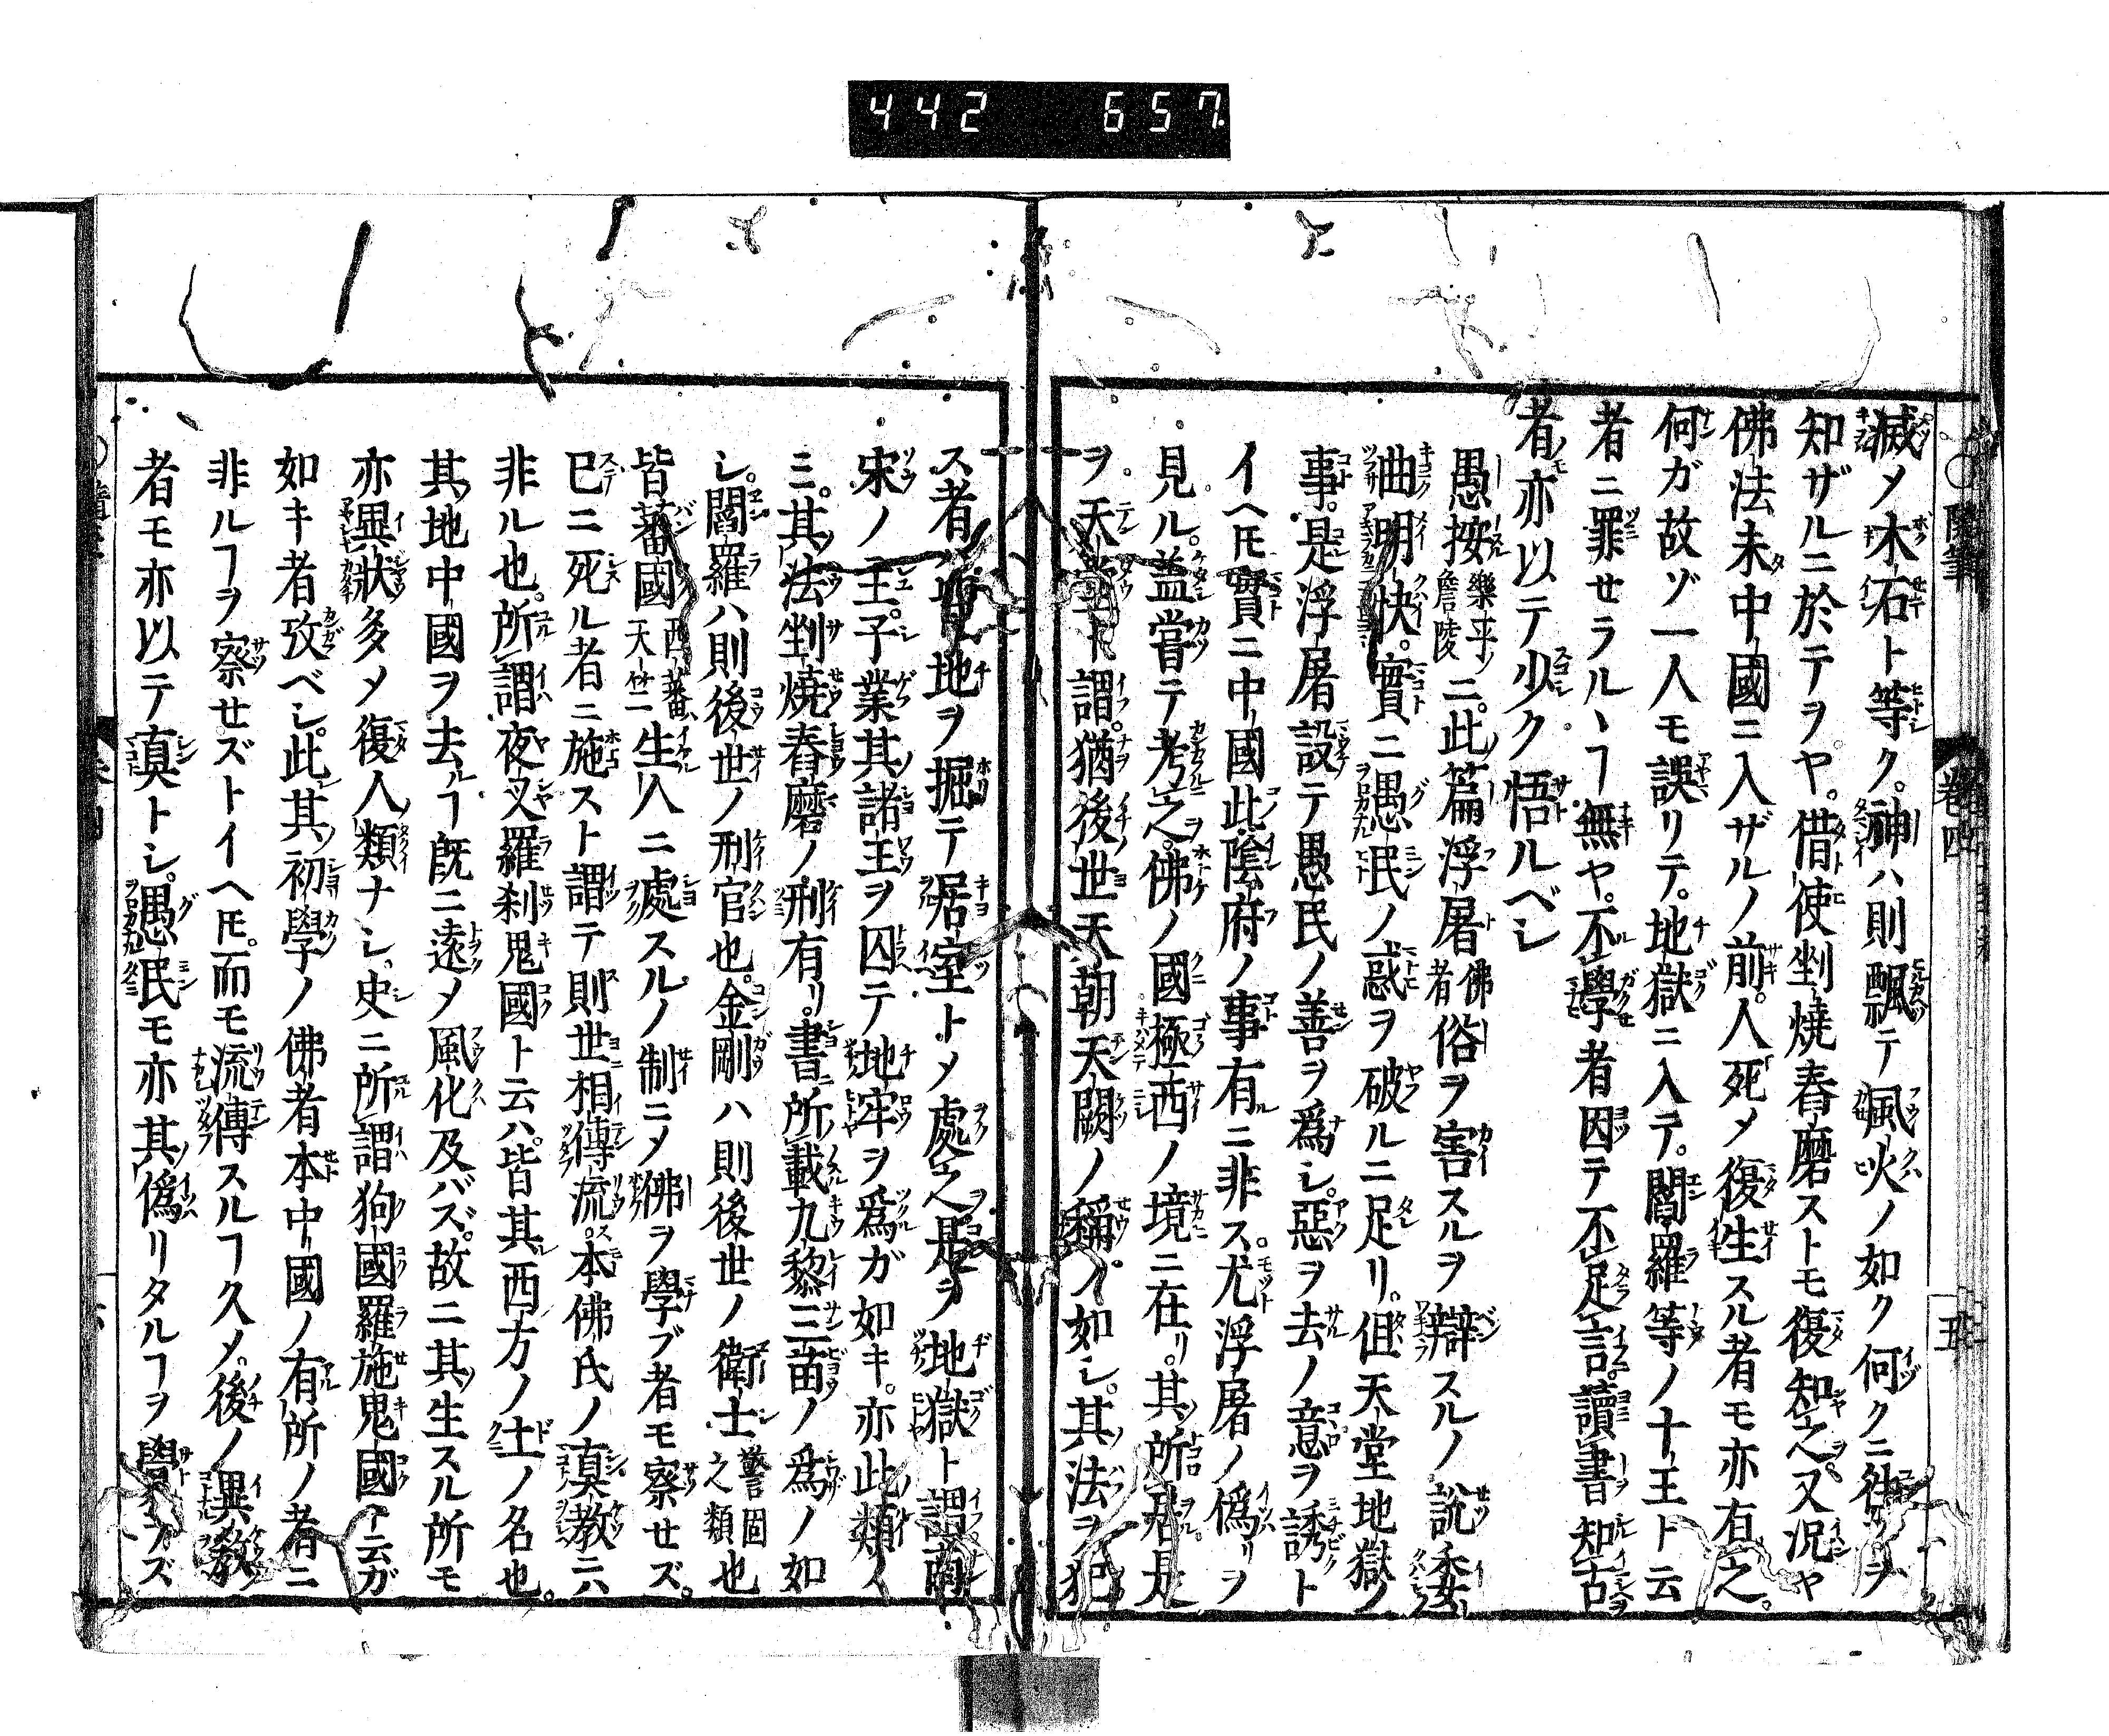 442 657
巻四
五
滅メ木石ト等ク。神ハ則飄テ風火ノ如ク何クニ往ヿヲ
知ザルニ於テヲヤ。借使剉焼舂磨ストモ復知之ヲ。又況ヤ
佛法未中國ニ入ザルノ前。人死メ復生スル者モ亦有之。
何ガ故ゾ一人モ誤リテ。地獄ニ入テ。閻羅等ノ十王ト云
者ニ罪セラルヽヿ無ヤ。不學者因テ不足言。讀書知古
者亦以テ少ク悟ルベシ
愚按樂平ノ詹陵ニ。此篇浮屠佛者俗ヲ害スルヲ辯スルノ説委
曲明快。實ニ愚民ノ惑ヲ破ルニ足リ。但天堂地獄ノ
事。是浮屠設テ愚民ノ善ヲ爲シ。惡ヲ去ノ意ヲ誘ト
イヘ𪜈實ニ中國此陰府ノ事有ニ非ス。尤浮屠ノ偽リヲ
見ル。盖嘗テ考之。佛ノ國極西ノ境ニ在リ。其所居是
ヲ天堂ト謂。猶後世天朝天闕ノ稱ノ如シ。其法ヲ犯
ス者ハ皆地ヲ掘テ居室トメ處之是ヲ地獄ト謂南
宋ノ王子業其諸王ヲ囚テ地牢ヲ爲ガ如キ。亦此類ノ
ミ。其法剉焼舂磨ノ刑有リ。書所載九黎三苗ノ爲ノ如
シ。閻羅ハ則後世ノ刑官也。金剛ハ則後世ノ衛士警固之類也
皆蕃國西蕃ハ天竺生人ニ處スルノ制ニメ佛ヲ學ブ者モ察セズ。
已ニ死ル者ニ施スト謂テ則世相傳流。本佛氏ノ真教ニハ
非ル也。所謂夜叉羅刹鬼國ト云ハ。皆其西方ノ土ノ名也。
其地中國ヲ去ルヿ既ニ遠メ風化及バズ。故ニ其生スル所モ
亦異狀多メ復人類ナシ。史ニ所謂狗國羅施鬼國ト云ガ
如キ者攷ベシ。此其初學ノ佛者本中國ノ有所ノ者ニ
非ルヿヲ察セズトイヘ𪜈。而モ流傳スルヿ久メ。後ノ異教ノ
者モ亦以テ真トシ。愚民モ亦其偽リタルヿヲ覺ラズ